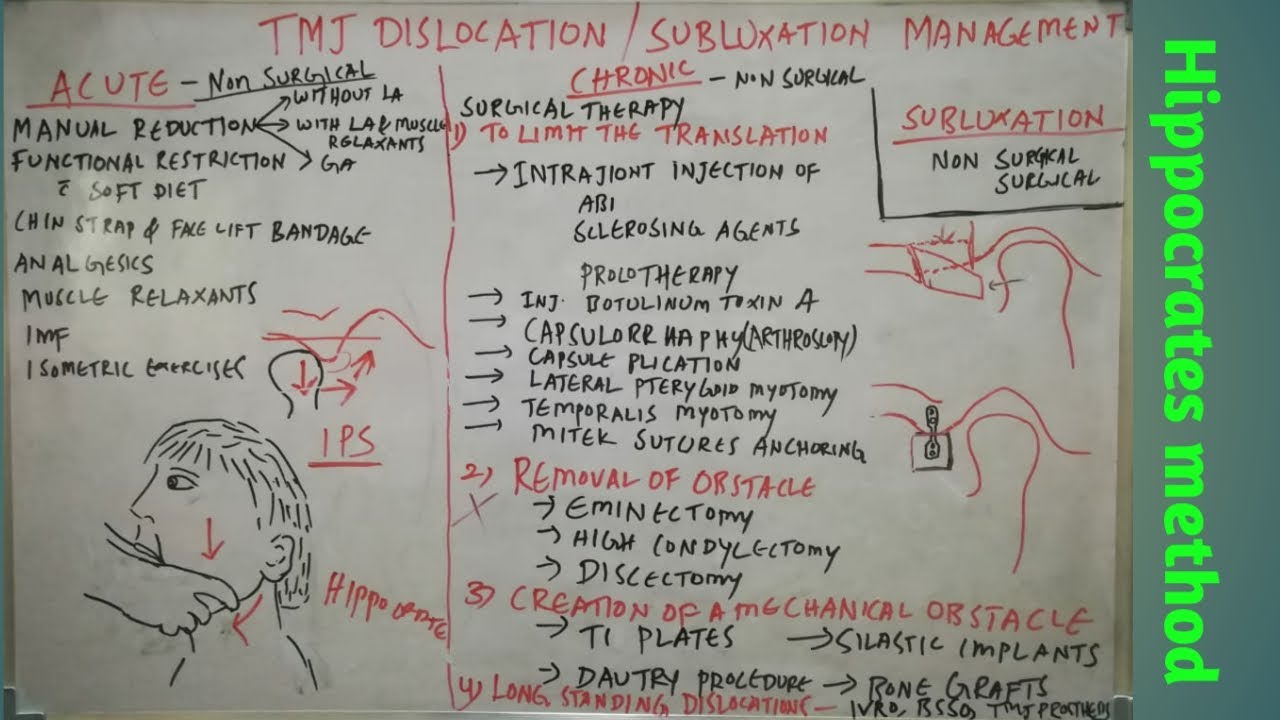 TMJ DISLOCATION / SUBLUXATION MANAGEMENT
ACUTE - NON SURGICAL
MANUAL REDUCTION
WITHOUT LA
WITH LA & MUSCLE
RELAXANTS
GA
FUNCTIONAL RESTRICTION
c̄ SOFT DIET
CHIN STRAP & FACE LIFT BANDAGE
ANALGESICS
MUSCLE RELAXANTS
IMF
ISOMETRIC EXERCISES
IPS
HIPPOCRATE
CHRONIC - NON SURGICAL
SURGICAL THERAPY
1) TO LIMIT THE TRANSLATION
→ INTRAJIONT INJECTION OF
ABI
SCLEROSING AGENTS
PROLOTHERAPY
→ INJ. BOTULINUM TOXIN A
→ CAPSULORRHAPHY (ARTHROSCOPY)
→ CAPSULE PLICATION
→ LATERAL PTERYGOID MYOTOMY
→ TEMPORALIS MYOTOMY
→ MITEK SUTURES ANCHORING
2) REMOVAL OF OBSTACLE
→ EMINECTOMY
→ HIGH CONDYLECTOMY
→ DISCECTOMY
3) CREATION OF A MECHANICAL OBSTACLE
→ TI PLATES → SILASTIC IMPLANTS
→ DAUTRY PROCEDURE → BONE GRAFTS
4) LONG STANDING DISLOCATIONS - IVRO, BSSO, TMJ PROSTHESIS
SUBLUXATION
NON SURGICAL
SURGICAL
Hippocrates method